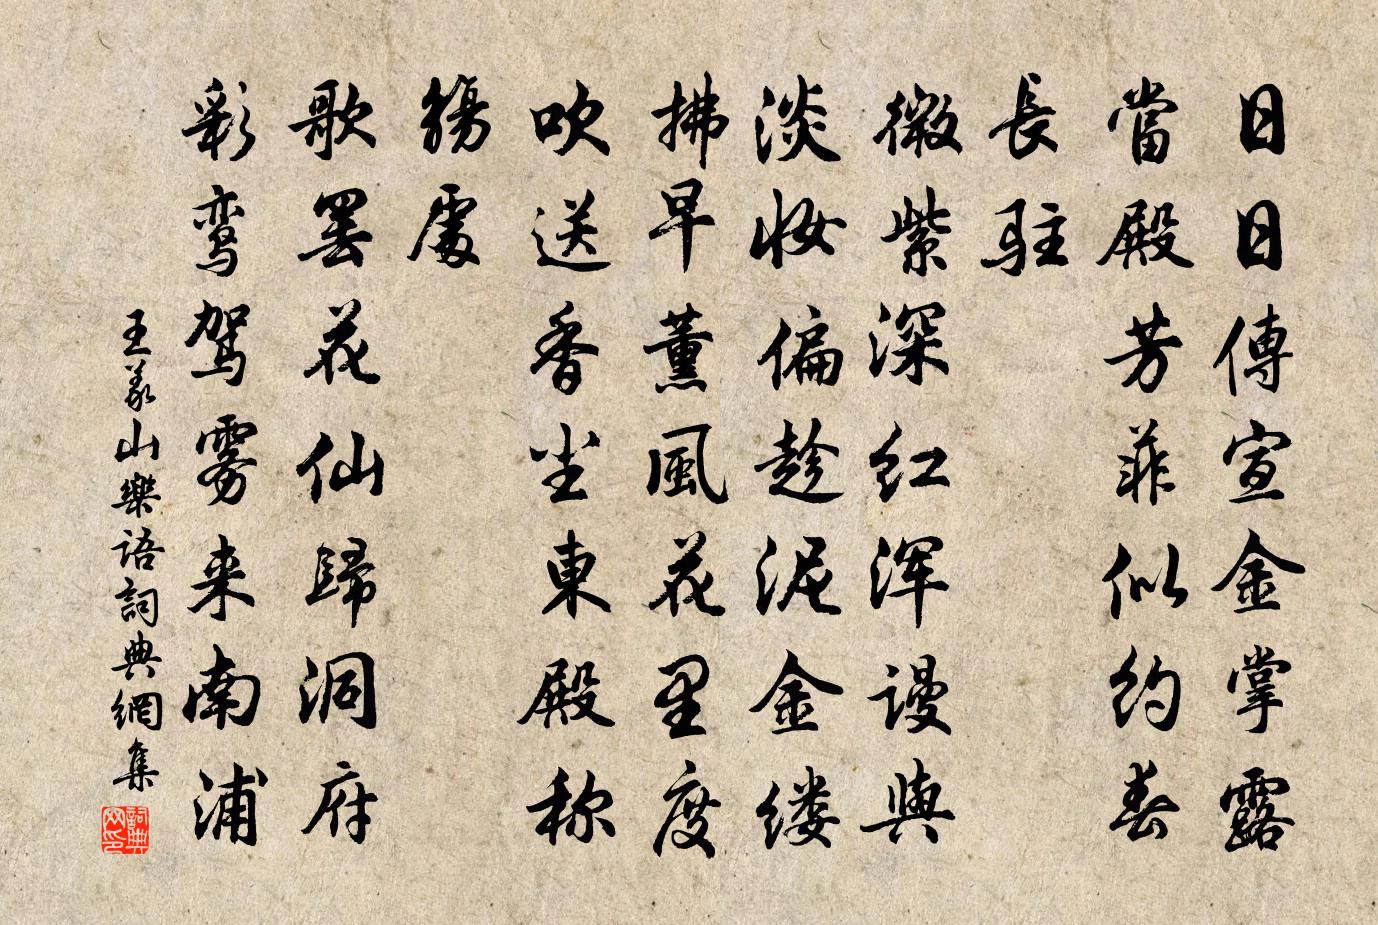 日日傳宣金掌露
當殿芳菲似約春
長駐
微紫深红浑谩與
淡妆偏趁泥金缕
拂早薰風花里度
吹送香尘東殿称
觴處
歌罢花仙歸洞府
彩鸾驾雾来南浦
王義山樂語詞典網集
詞典网印